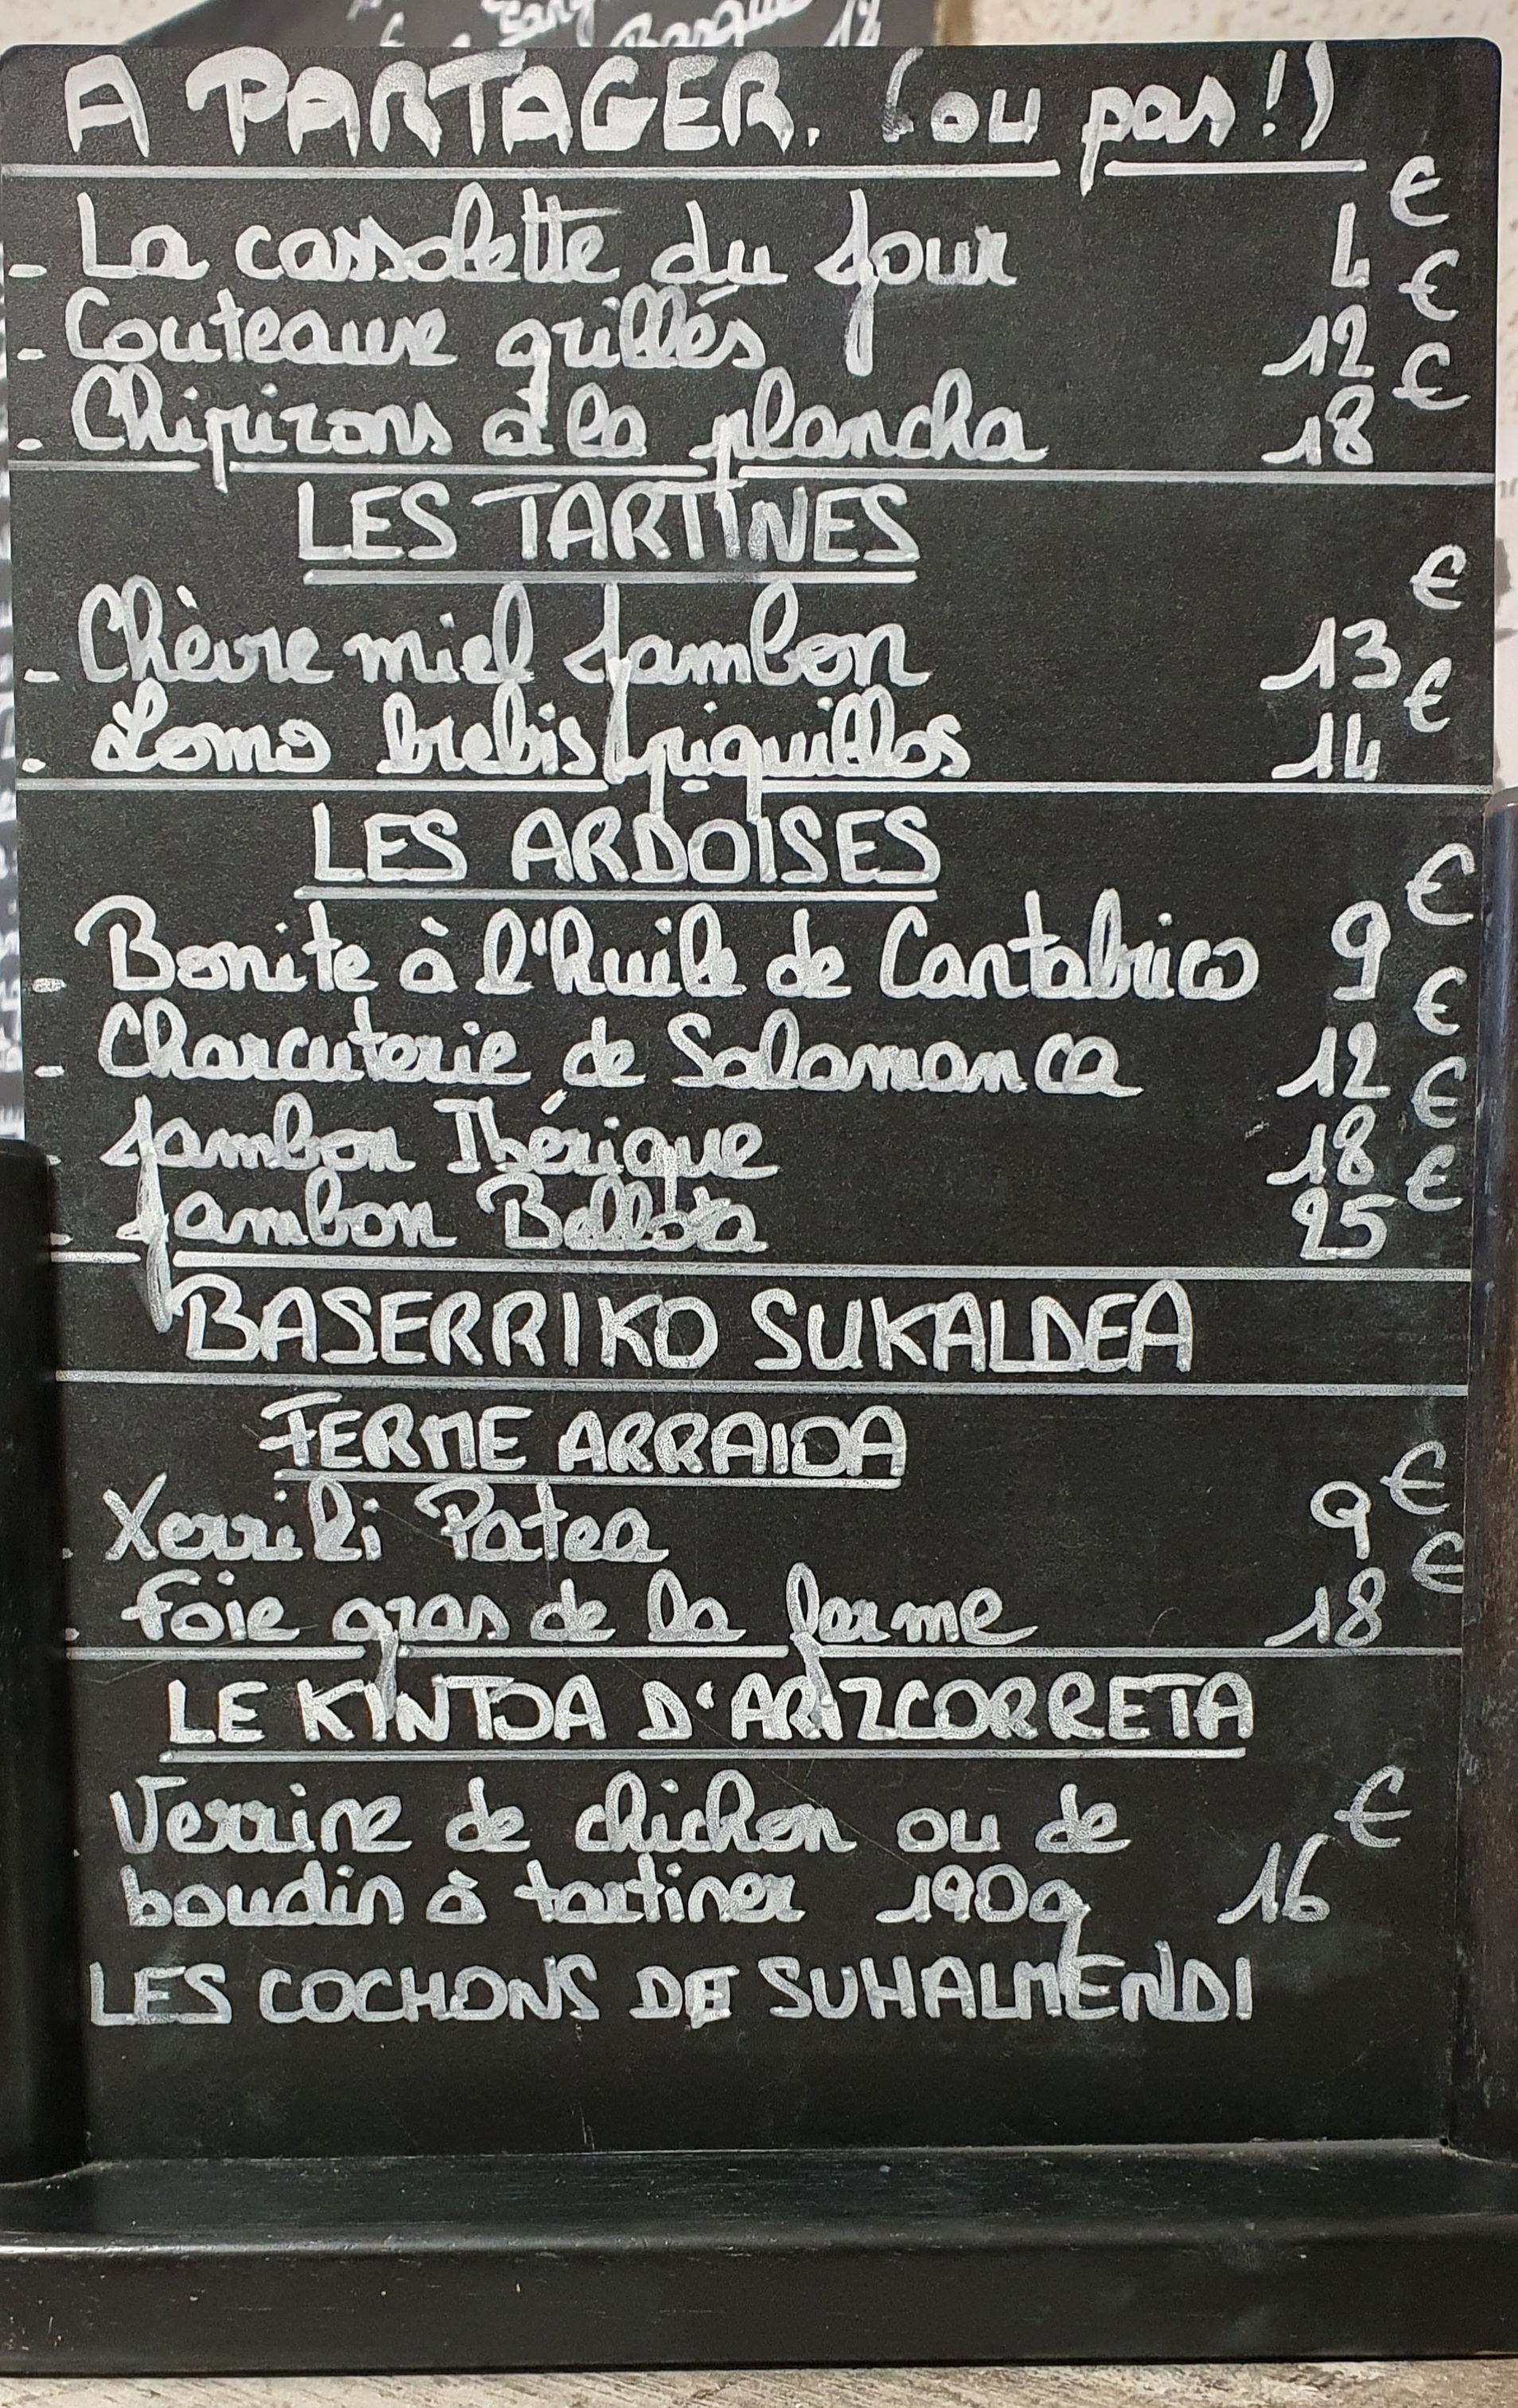 A PARTAGER. (ou pas!)
€
- La cassolette du Jour 4
€
- Couteaux grillés 12
€
- Chipirons à la plancha 18
LES TARTINES
€
- Chèvre miel Jambon 13
€
- Lomo brebis piquillos 14
LES ARDOISES
€
- Bonite à l'huile de Cantabrico 9
€
- Charcuterie de Salamanca 12
€
- Jambon Ibérique 18
€
- Jambon Bellota 25
BASERRIKO SUKALDEA
FERME ARRAIOA
€
- Xerriki Patea 9
€
- foie gras de la ferme 18
LE KINTOA D'ARIZCORRETA
€
Verrine de chichon ou de
boudin à tartiner 190g 16
LES COCHONS DE SUHALMENDI